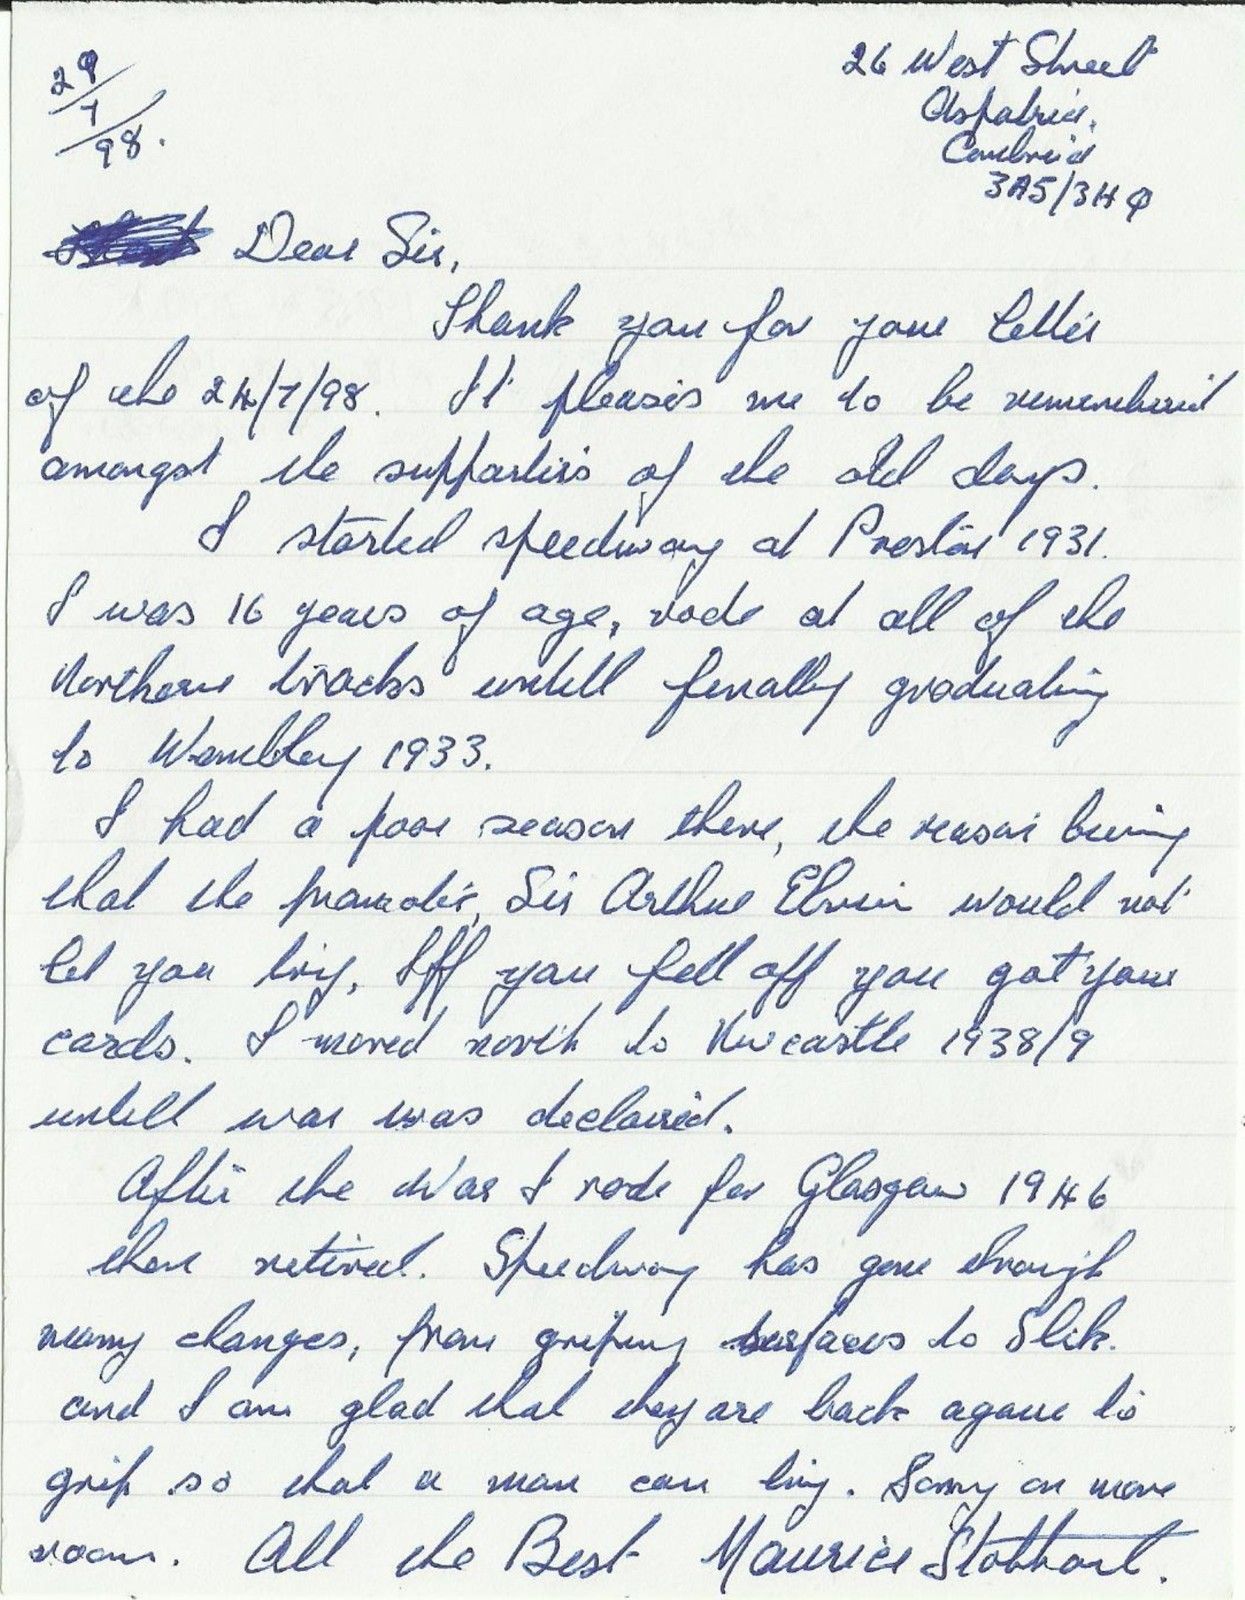 29/7/98.
26 West Street
Aspatria.
Cumbria
3A5/3HQ
Dear Sir,
Thank you for your letter
of the 24/7/98. It pleases me to be remembered
amongst the supporters of the old days.
I started speedway at Preston 1931.
I was 16 years of age, rode at all of the
Northern tracks untill finally graduating
to Wembley 1933.
I had a poor season there, the reason being
that the promoter, Sir Arthur Elvin would not
let you try, Iff you fell off you got your
cards. I moved north to Newcastle 1938/9
untill war was declaired.
After the War I rode for Glasgow 1946
then retired. Speedway has gone through
many changes, from griping surfaces to Slick.
and I am glad that they are back again to
grip so that a man can try. Sorry on more
room. All the Best Maurice Stobbart.